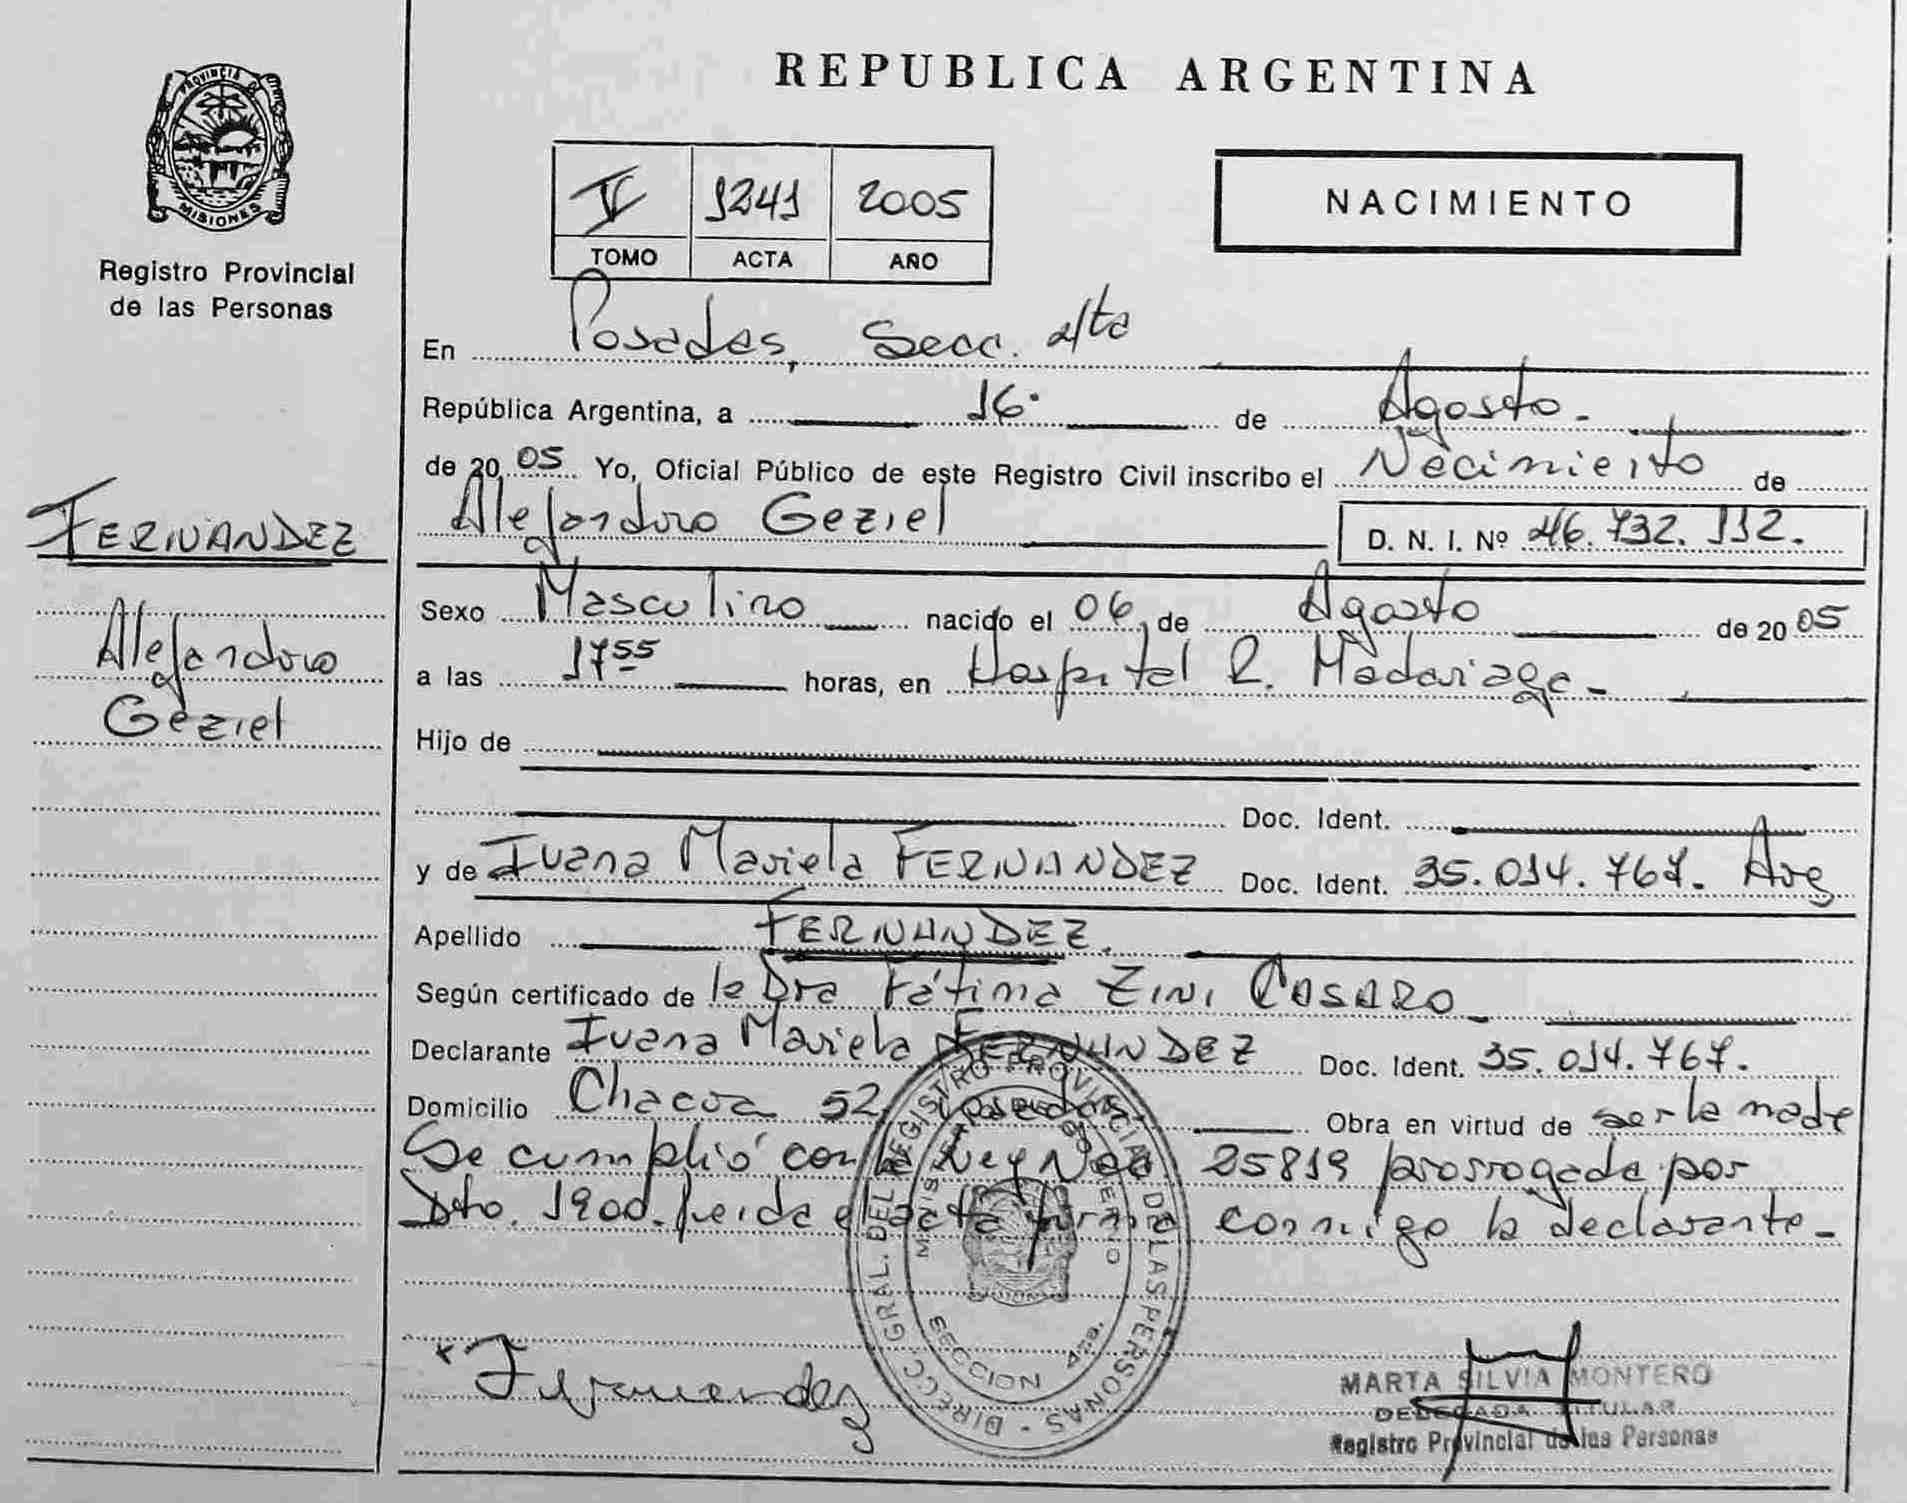 REPUBLICA ARGENTINA
PROVINCIA DE
MISIONES
Registro Provincial
de las Personas
1241 2005
TOMO ACTA AÑO
NACIMIENTO
En Posadas, Secc. 4ta
República Argentina, a 16. de Agosto.
de 20 05 Yo, Oficial Público de este Registro Civil inscribo el Nacimiento de
Alejandro Geziel D. N. I. Nº 46.732.112.
FERNANDEZ
Alejandro
Geziel
Sexo Masculino nacido el 06 de Agosto de 20 05
a las 17 55 horas, en Hospital R. Madariaga
Hijo de
Doc. Ident.
y de Ivana Mariela FERNANDEZ Doc. Ident. 35.014.767. Arg
Apellido FERNANDEZ.
Según certificado de la Dra Fátima ZINI CASARO
Declarante Ivana Mariela FERNANDEZ Doc. Ident. 35.014.767.
Domicilio Chacra 52, Posadas Obra en virtud de ser la madre
Se cumplió con la Ley Nac 25819 prorrogada por
Dto. 1900. leida el acta firma conmigo la declarante
DIRECC. GRAL. DEL REGISTRO PROVINCIAL DE LAS PERSONAS
SECCION 4ta.
Fernandez
MARTA SILVIA MONTERO
DELEGADA TITULAR
Registro Provincial de las Personas